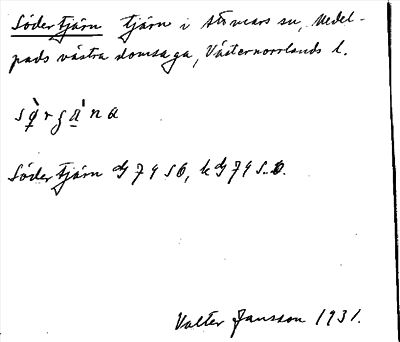 Södertjärn tjärn i Attmars sn, Medel-
pads västra domsaga, Västernorrlands l.
Södertjärn G 7956, k G 795
Valter Jansson 1931.